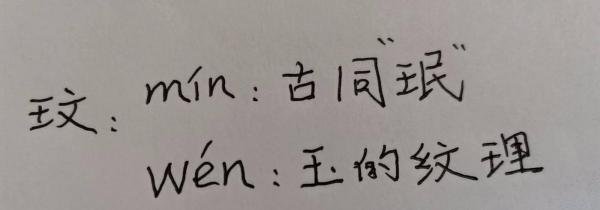 玟：mín：古同“珉”
wén：玉的纹理